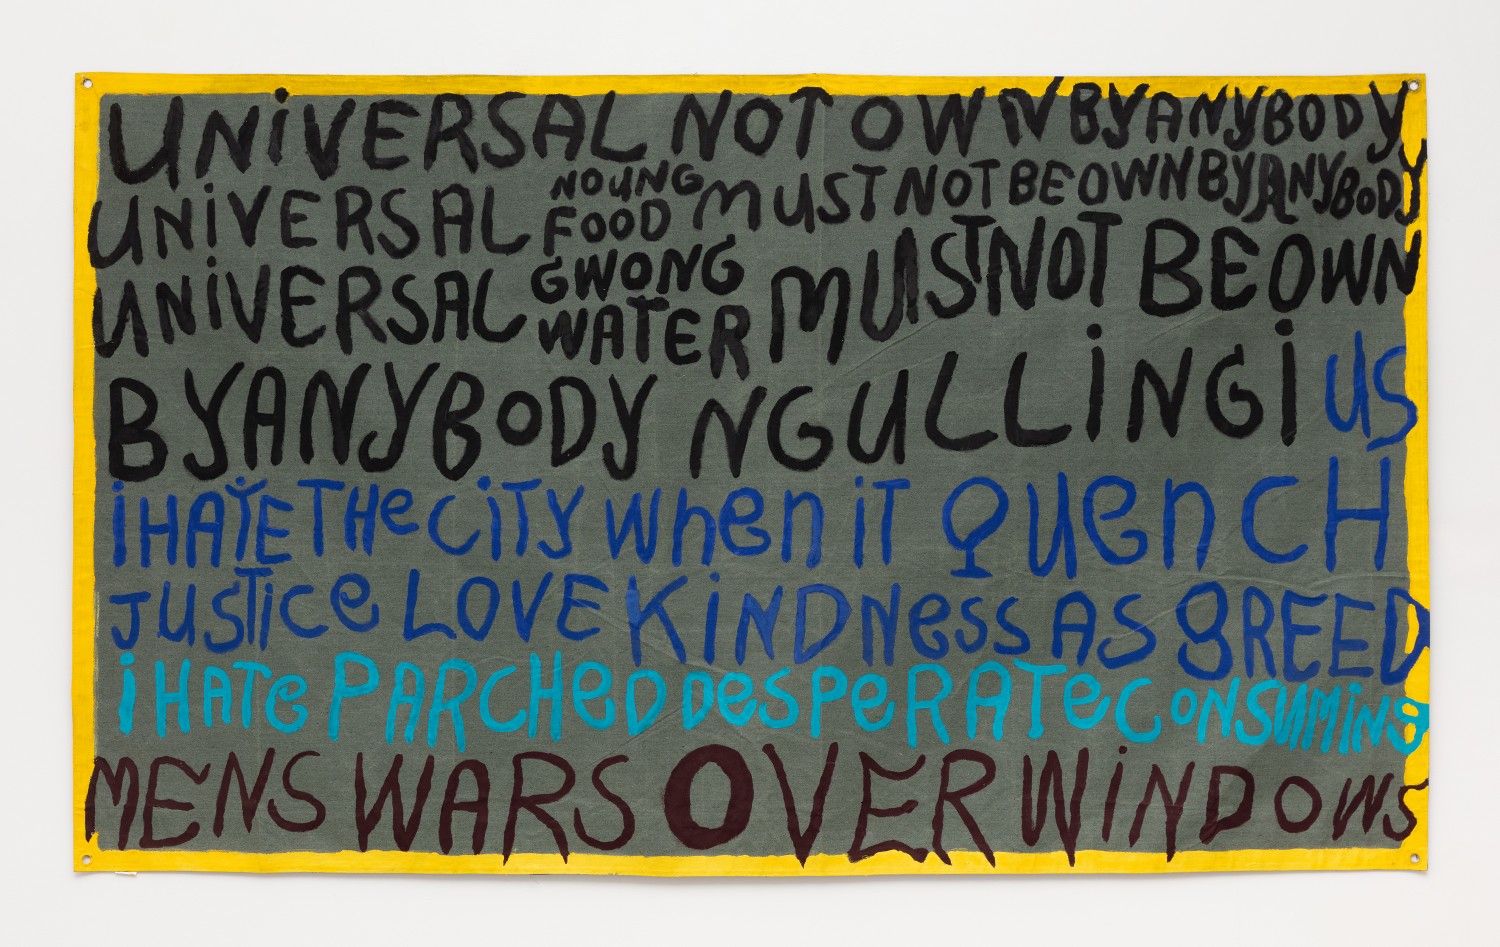 UNiVERSAL NOT OWN BYANYBODY
UNiVERSAL NOUNG FOOD MUST NOT BE OWN BY ANYBODY
UNiVERSAL GWONG WATER MUST NOT BE OWN
BYANYBODY NGULLiNGi US
iHATE THe CiTY When iT QUenCH
JUSTiCe LOVE KiNDNess AS gREED
i HATe PARCHeD DesPeRATe CONSUMiNg
MENS WARS OVER WiNDOWS